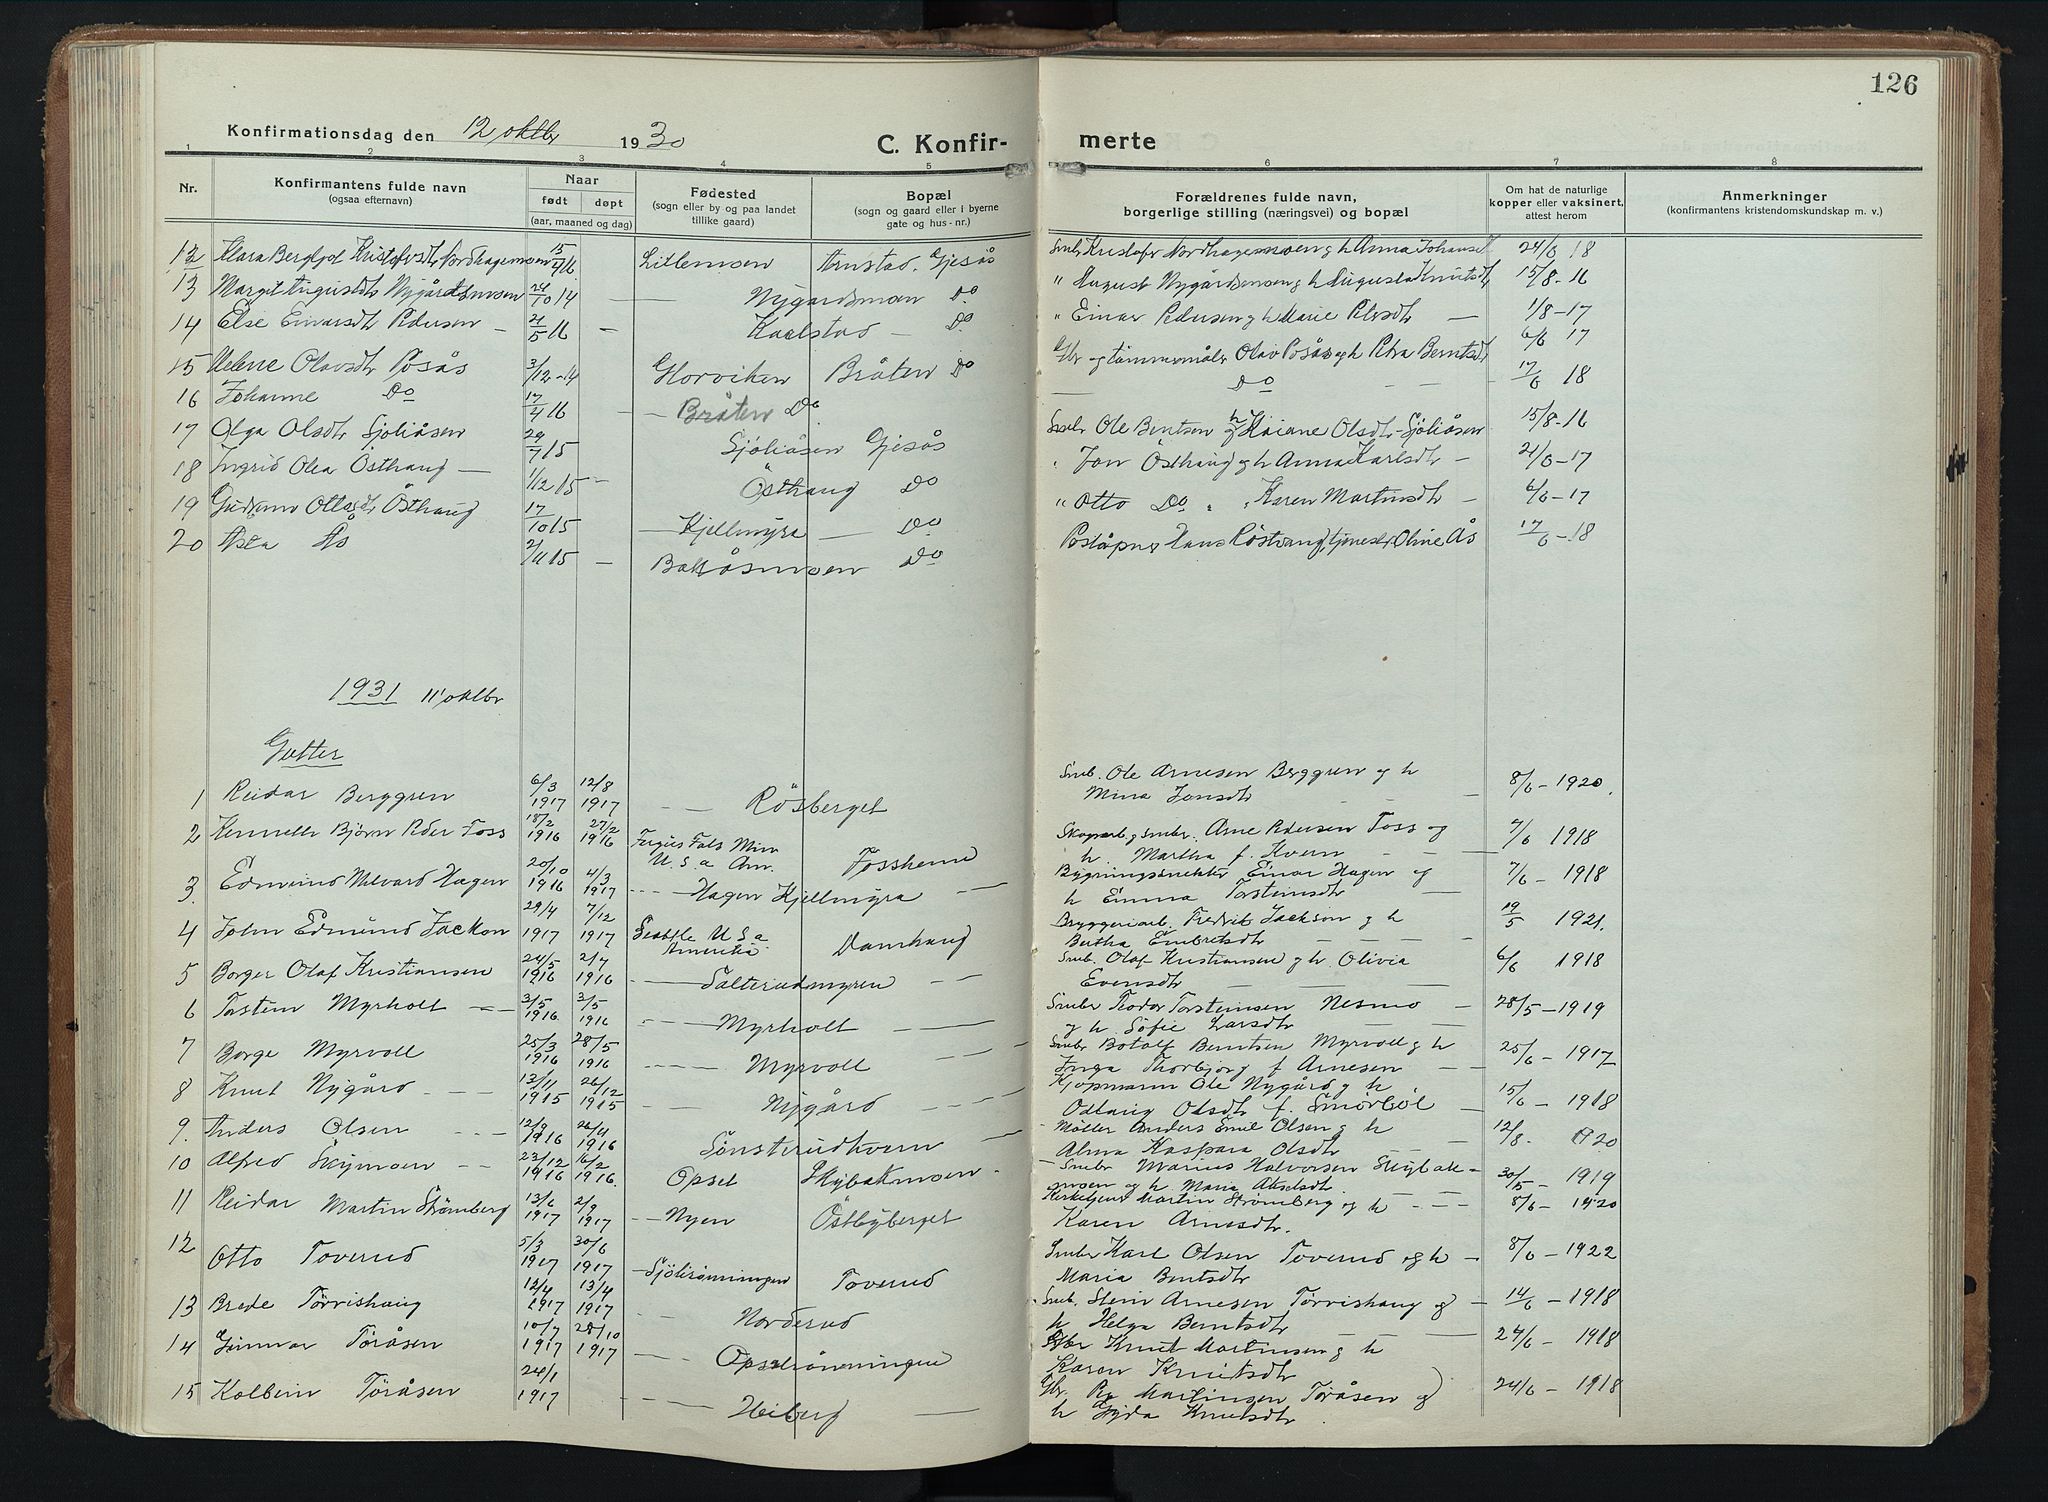 126
Konfirmationsdag den 12 oktbr 1930
C. Konfirmerte
1 2 3 4 5 6 7 8
Nr.
Konfirmantens fulde navn
(ogsaa efternavn)
Naar
født døpt
(aar, maaned og dag)
Fødested
(sogn eller by og paa landet
tillike gaard)
Bopæl
(sogn og gaard eller i byerne
gate og hus-nr.)
Forældrenes fulde navn,
borgerlige stilling (næringsvei) og bopæl
Om hat de naturlige
kopper eller vaksinert,
attest herom
Anmerkninger
(konfirmantens kristendomskundskap m. v.)
12 Klara Bergljot Kristofersdtr Nordhagemoen 15/4 16 Lillemoen Arnstad, Gjesås Smbr Kristofer Nordhagemoen g h Anna Johansdt 24/6 18
13 Margit Augustdtr Nygårdsmoen 24/10 14 — Nygårdsmoen Do " August Nygårdsmoen g h Augusta Knutsdtr 15/8-16
14 Else Einarsdtr Pedersen — 21/5 16 — Karlstad — Do " Einar Pedersen g h Marie Pedersdtr — 1/8-17
15 Helene Olavsdtr Posås 3/12-14 Glorviken Bråten Do Gbr og tømmermåler Olav Posås og h Petra Berntsdtr 6/6 17
16 Johanne Do 17/4 16 — Bråten Do — Do — — 17/6 18
17 Olga Olsdtr Sjøliåsen 29/7 15 Sjøliåsen Gjesås Smbr Ole Bentsen g h Kaiane Olsdtr Sjøliåsen 15/8-16
18 Ingrid Olea Østhaug — 1/12 15 — Østhaug Do " Jon Østhaug og h Anna Karlsdtr — 21/6-17
19 Gudrun Ottosdtr Østhaug 17/10 15 — Kjellmyra — Do " Otto Do " " Karen Martinsdtr — 6/6-17
20 Asta Ås 2/11 15 — Bakåsmoen Do Poståpner Hans Røstvang, tjenestr Oline Ås 17/6-18
1931 11' oktbr
Gutter
1 Reidar Berggren 6/3 1917 12/8 1917 — Røsberget Smb. Ole Arnesen Berggren og h
Mina Jonsdtr — 8/6-1920.
2 Kenneth Bjørn Peder Foss 18/2 1916 27/2 1916 Fergus Fals Minn
U. S. a Am. Fossheim Skogsarb. g smbr. Arne Pedersen Foss og
h. Martha f. Kvern — 7/6 1918
3. Edmund Halvard Hagen 20/10 1916 4/3 1917 --- Hagen Kjellmyra — Bygningssnekker Einar Hagen og
h Emma Torsteinsdtr — 7/6-1918
4 John Edmund Jackson 29/4 1917 7/12 1917 Seattle U S a
Amerika Damhaug Bryggeriarb. Fredrik Jackson og h
Bertha Embretsdtr — 19/5 1921.
5 Borger Olaf Kristiansen 24/5 1916 2/7 1916 — Salterudmyren — Smb. Olaf Kristiansen og h. Olivia
Evensdtr — 6/6 1918
6 Torstein Myrholt — 3/5 1916. 3/5 1916 — Myrholt — Smbr Teodor Torsteinsen Nesmo —
og h. Sofie Larsdtr 28/5-1919
7 Børge Myrvoll 25/3 1916 28/5 1916 — Myrvoll — Smbr Botolf Berntsen Myrvoll g h
Inga Thorbjørg f Arnesen — 25/6-1917
8 Knut Nygård — 13/11 1915 26/12 1915 — Nygård — Kjøpmann Ole Nygård g h
Odlaug Olsdtr f. Smørbøl — 15/6-1918
9. Anders Olsen — 12/9 1916 26/11 1916 Sønsterudkvern — Møller Anders Emil Olsen g h
Alma Kaspara Olsdtr 12/8. 1920
10 Alfred Skymoen — 23/12 1916 16/2 1916. Opset Skybakmoen — Smbr Marius Halvorsen Skybak-
moen og h. Maria Akselsdtr 30/5-1919
11 Reidar Martin Strømberg 13/6 1917 2/9 1917 — Nyen Østbyberget Kirketjener Martin Strømberg og h —
Karen Arnesdtr. 8/6-1920
12 Otto Toverud 5/3 1917 30/6 1917 — Sjølirønningen Toverud Smbr Karl Olsen Toverud og h —
Maria Berntsdtr 8/6-1922
13 Brede Tørrishaug 12/4 1917 13/4 1917 — Norderud Smb. Stein Arnesen Tørrishaug og —
h Helga Berntsdtr 14/6-1918
14 Gunnar Tøråsen 10/7 1917 28/10 1917 — Opsetrønningen Gbr Knut Martinsen g h
Karen Knutsdtr 24/6-1918
15 Kolbein Tøråsen 24/1 1917 — Heiberg — Gbr. Martinsen Tøråsen og
h Gyda Knutsdtr. 24/6-1918